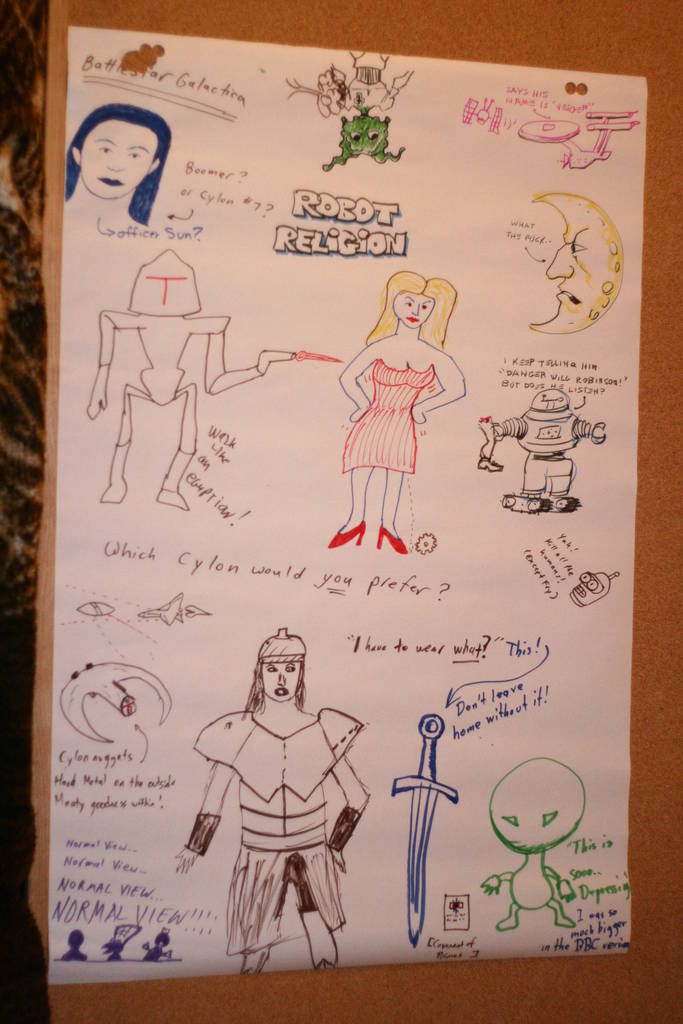 Battlestar Galactica
SAYS HIS
NAME IS "VEEGER"
Boomer?
or Cylon #7?
officer Sun?
ROBOT
RELIGION
WHAT
THE
I KEEP TELLING HIM
"DANGER WILL ROBINSON!"
BUT DOES HE LISTEN?
Walk
Like
an
egyptian!
Which Cylon would you prefer?
Yah!
Kill all the
humans!
(except Fry)
"I have to wear what?"
This!
Don't leave
home without it!
Cylon nuggets
Hard Metal on the outside
Meaty goodness within!
Normal View...
Normal View...
NORMAL VIEW...
NORMAL VIEW!!!!
"This is
sooo..
Depressing
I was so
much bigger
in the BBC version